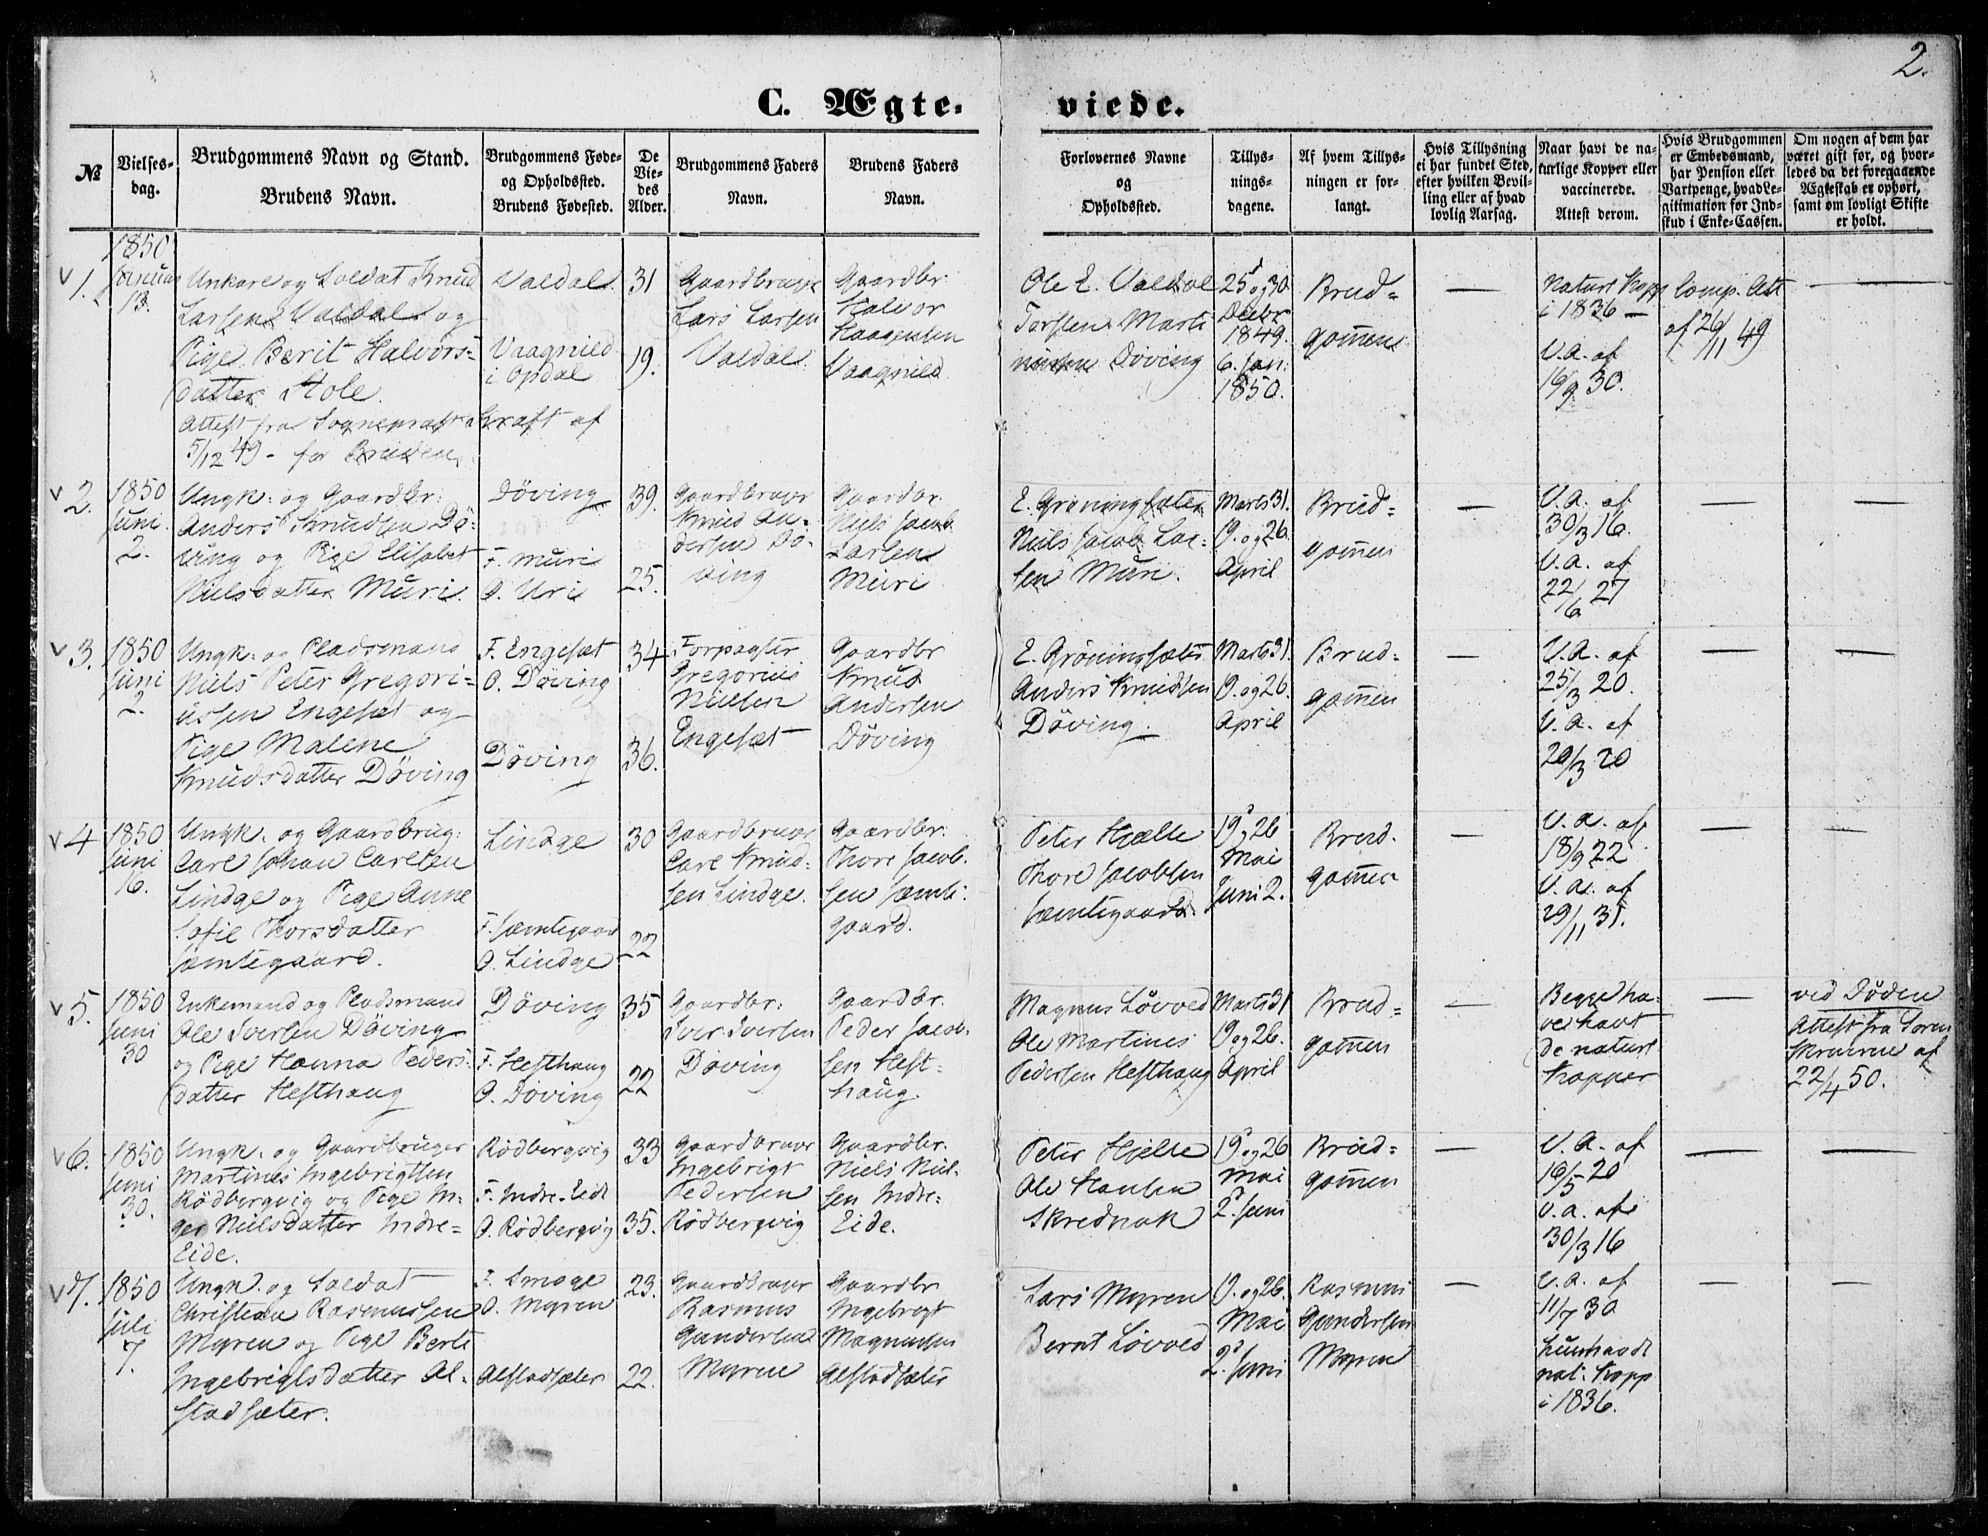 2.
C. Ægte- viede.
№
Vielses-
dag.
Brudgommens Navn og Stand.
Brudens Navn.
Brudgommens Føde-
og Opholdssted.
Brudens Fødested.
De
Vie-
des
Alder.
Brudgommens Faders
Navn.
Brudens Faders
Navn.
Forlovernes Navne
og
Opholdssted.
Tillys-
nings-
dagene.
Af hvem Tillys-
ningen er for-
langt.
Hvis Tillysning
ei har fundet Sted,
efter hvilken Bevil-
ling eller af hvad
lovlig Aarsag.
Naar havt de na-
turlige Kopper eller
vaccinerede.
Attest derom.
Hvis Brudgommen
er Embedsmand,
har Pension eller
Vartpenge, hvad Le-
gitimation for Ind-
skud i Enke-Cassen.
Om nogen af dem har
været gift før, og hvor-
ledes da det foregaaende
Ægteskab er ophørt,
samt om lovligt Skifte
er holdt.
v 1.
1850
Januar
13.
Unkare og Soldat Knud
Larsen Valdal og
Pige Berit Halvors-
datter Stole.
Attest fra Sognepræst Kraft af
5/12 49 - for Bruden
Valdal
Vaagnild
i Opdal
31
19.
Gaardbruger
Lars Larsen
Valdal
Gaardbr.
Halvor
Haagensen
Vaagnild
Ole E. Valdal
Torsten Marti
nusen Döving
25 og 30
Decbr
1849.
6. Jan:
1850.
Brud=
gomen
—
Naturl Kopp
i 1836 —
V. A. af
16/9 30.
Comp. Att
af 26/11 49
—
v 2.
1850
Juni
2.
Ungk: og Gaardbr:
Anders Knudsen Dö-
ving og Pige Elisabet
Nielsdatter Muri.
Döving
F. Muri
O. Uri
39.
25.
Gaardbruger
Knud An-
dersen Dö-
ving
Gaardbr.
Niels Jacob
Larsen
Muri
E. Gröningsæter
Niels Jacob Lar-
sen Muri.
Marts 31.
19. og 26.
April
Brud-
gomen
—
V. A. af
30/3 16.
V. A. af
22/6 27
—
—
v 3.
1850
Juni
2
Ungk: og Pladsmand
Niels Peter Gregori-
ussen Engeset og
Pige Malene
Knudsdatter Döving
F. Engeset
O. Döving
Döving
34
36.
Forpagter
Gregorius
Nielsen
Engeset
Gaardbr
Knud
Andersen
Döving
E. Gröningsæter
Anders Knudsen
Döving.
Marts 31.
19. og 26.
April
Brud-
gomen
—
V. A. af
25/3 20.
V. A. af
20/3 20
—
—
v 4
1850
Juni
16.
Ungk. og Gaardbrug:
Carl Johan Carlsen
Lindge og Pige Anne
Sofie Thorsdatter
Jamtegaard.
Lindge
F. Jæmtegaard
O. Lindge
30
22
Gaardbruger
Carl Knud-
sen Lindge.
Gaardbr:
Thore Jacob-
sen Jæmte-
gaard.
Peter Hjelle
Thore Jacobsen
Jæmtegaard.
19 og 26
Mai
Juni 2.
Brud-
gomen
—
V. A. af
18/9 22
V. A. af
29/11 31.
—
—
v 5.
1850
Juni
30
Enkemand og Pladsmand
Ole Iversen Döving
og Pige Hanna Peders-
datter Hesthaug
Döving
F. Hesthaug
O. Döving
35
22
Gaardbr:
Iver Iversen
Döving
Gaardbr.
Peder Jacob-
sen Hest-
haug.
Magnus Lövved
Ole Martines
Pedersen Hesthaug
Marts 31
19 og 26.
April
Brud=
gomen
—
Begge ha-
ve havt
de naturl
Kopper
—
ved Döden
Attest fra Soren
skriveren af
22/4 50.
v 6.
1850
Juni
30.
Ungk: og Gaardbruger
Martines Ingebrigtsen
Rödbergvig og Pige In-
ger Nielsdatter Indre-
Eide.
Rödbergvig
F. Indre-Eide
O. Rödbergvig
33
35.
Gaardbruger
Ingebrigt
Pedersen
Rödbergvig
Gaardbr.
Niels Niel-
sen Indre-
Eide.
Peter Hjelle
Ole Hansen
Skrednak
19 og 26
Mai
2. Juni
Brud=
gomen
—
V. A. af
16/5 20
V. A. af
30/3 16
—
—
v 7.
1850
Juli
7.
Ungk. og Soldat
Christian Rasmussen
Myren og Pige Berte
Ingebrigtsdatter Al-
stadsæter.
F. Smoge
O. Myren
Alstadsæter
23.
22.
Gaardbruger
Rasmus
Gundersen
Myren
Gaardbr
Ingebrigt
Magnussen
Alstadsæter
Lars Myren
Bernt Lövved
19. og 26.
Mai
2. Juni
Rasmus
Gundersen
Myren
—
V. A. af
11/7 30
hun havt
nat: Kopp
i 1836.
—
—